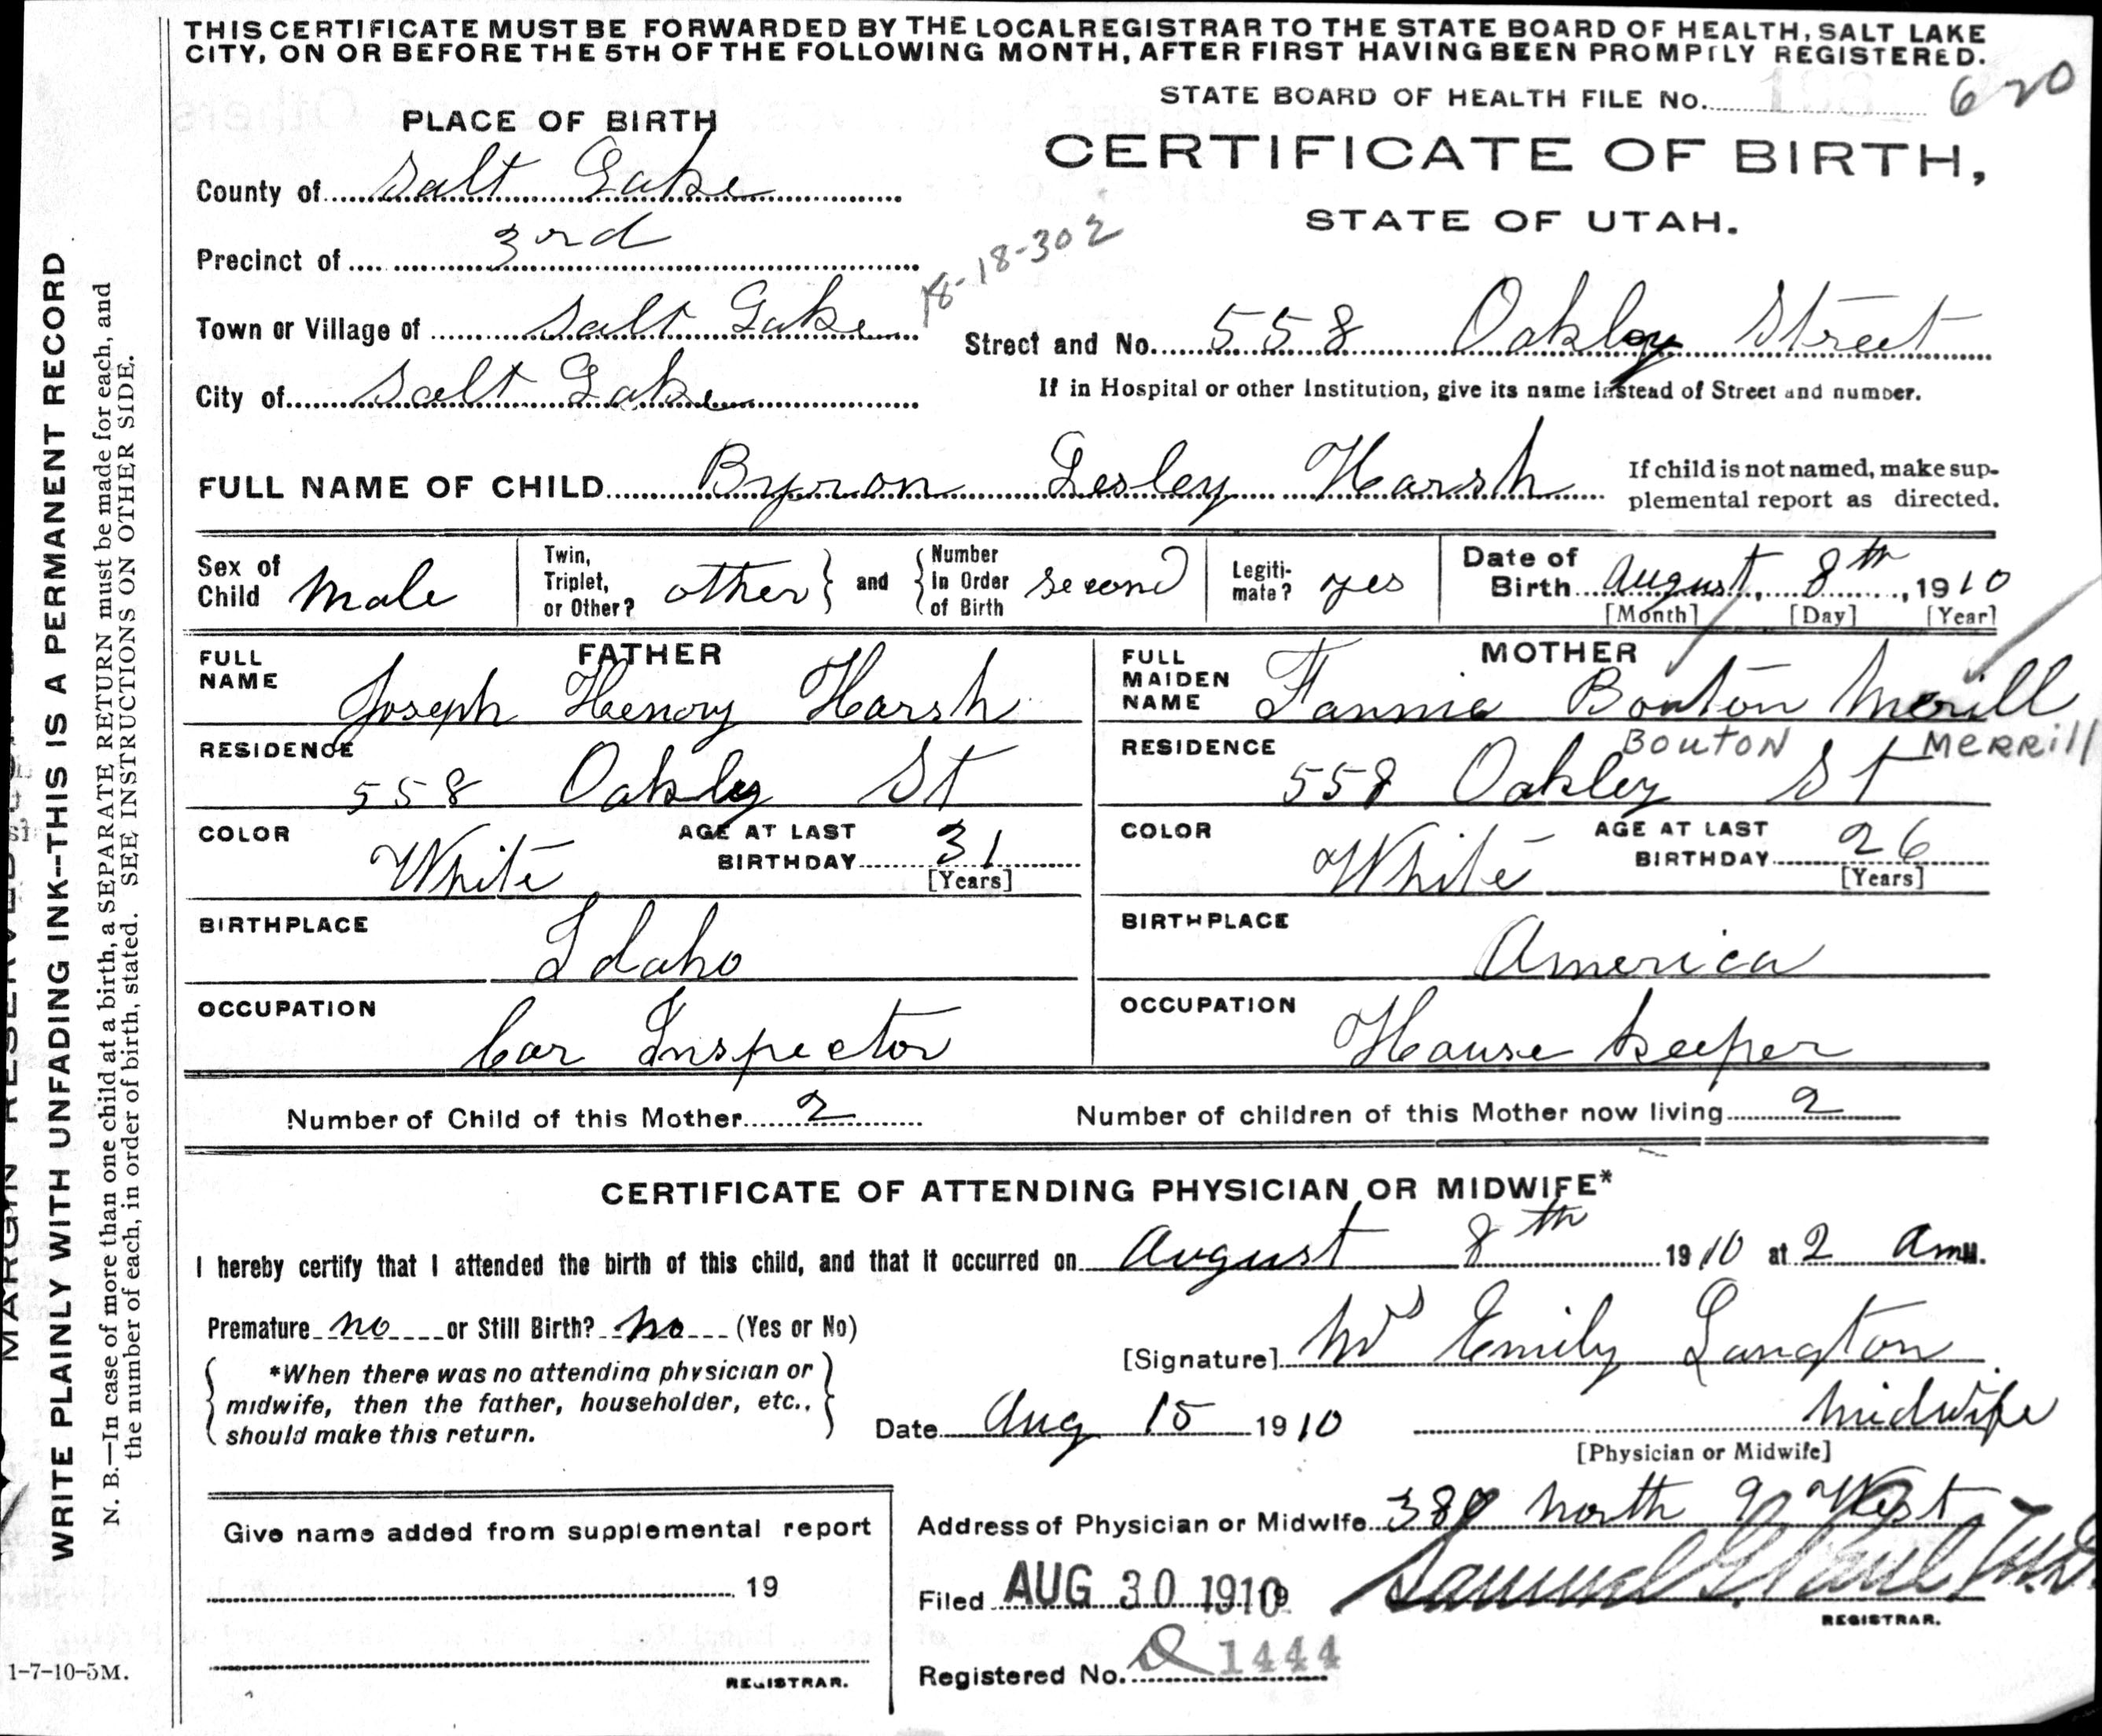 THIS CERTIFICATE MUST BE FORWARDED BY THE LOCALREGISTRAR TO THE STATE BOARD OF HEALTH, SALT LAKE
CITY, ON OR BEFORE THE 5TH OF THE FOLLOWING MONTH, AFTER FIRST HAVING BEEN PROMPTLY REGISTERED.
STATE BOARD OF HEALTH FILE No. 620
PLACE OF BIRTH
CERTIFICATE OF BIRTH,
STATE OF UTAH.
County of Salt Lake
Precinct of 3rd
18-18-302
Town or Village of Salt Lake
Street and No. 558 Oakley Street
City of Salt Lake
If in Hospital or other Institution, give its name instead of Street and number.
FULL NAME OF CHILD Byron Lesley Harsh
If child is not named, make sup-
plemental report as directed.
Sex of Child Male
Twin, Triplet, or Other? other } and { Number in Order of Birth second
Legiti-mate? yes
Date of Birth August, 8th, 1910
[Month] [Day] [Year]
FATHER
FULL NAME Joseph Henory Harsh
RESIDENCE 558 Oakley St
COLOR White
AGE AT LAST BIRTHDAY 31
[Years]
BIRTHPLACE Idaho
OCCUPATION Car Inspector
MOTHER
FULL MAIDEN NAME Fannie Bouton Merill
BOUTON MERRill
RESIDENCE 558 Oakley St
COLOR White
AGE AT LAST BIRTHDAY 26
[Years]
BIRTHPLACE America
OCCUPATION House keeper
Number of Child of this Mother 2
Number of children of this Mother now living 2
CERTIFICATE OF ATTENDING PHYSICIAN OR MIDWIFE*
I hereby certify that I attended the birth of this child, and that it occurred on August 8th 1910 at 2 am M.
Premature no or Still Birth? no (Yes or No)
[Signature] Mrs Emily Langton
*When there was no attending physician or
midwife, then the father, householder, etc.,
should make this return.
Date Aug 15 1910
Midwife
[Physician or Midwife]
Address of Physician or Midwife 380 North 9 West
Give name added from supplemental report
19
REGISTRAR.
Filed AUG 30 1910
Samuel G. Paul M.D.
REGISTRAR.
Registered No. 1444
MARGIN RESERVED
WRITE PLAINLY WITH UNFADING INK--THIS IS A PERMANENT RECORD
N. B.—In case of more than one child at a birth, a SEPARATE RETURN must be made for each, and
the number of each, in order of birth, stated. SEE INSTRUCTIONS ON OTHER SIDE.
1-7-10-5M.